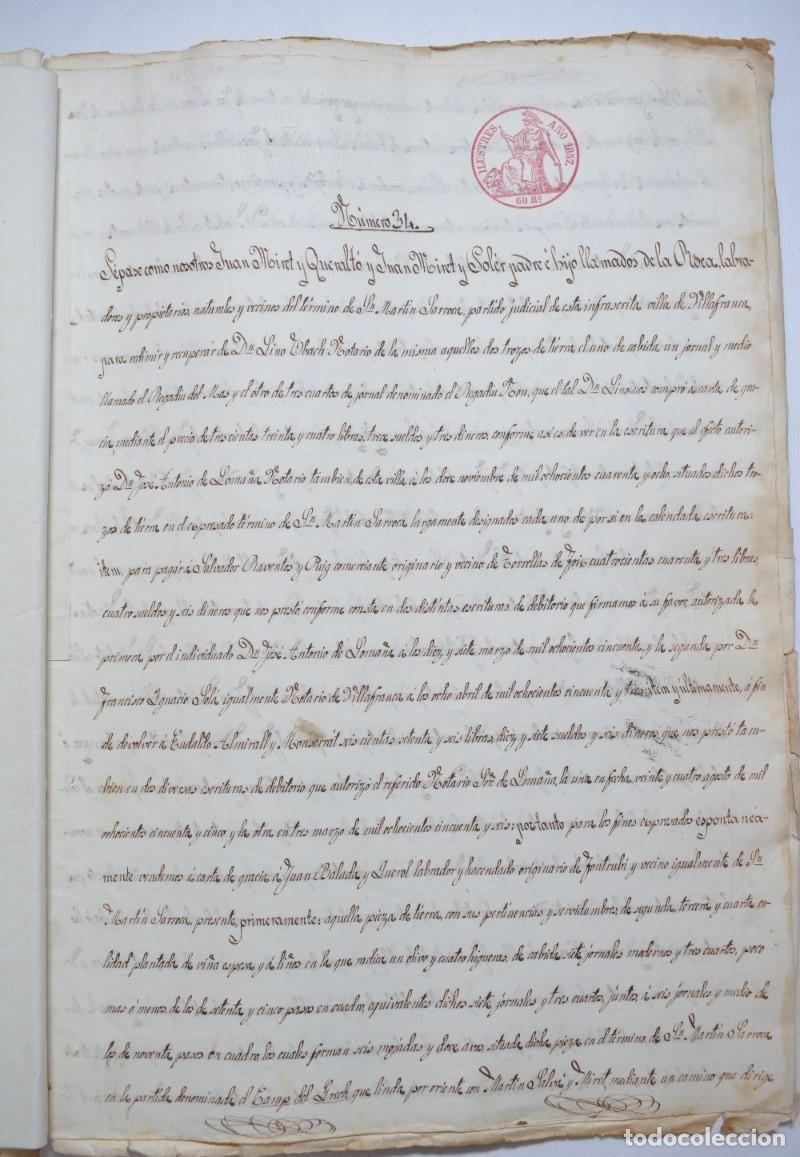 ILUSTRES AÑO 1857
60 Rs
Número 34.
Sépase como nosotros Juan Miret y Queraltó y Juan Miret y Solér padre é hijo llamados de la Roca, labra-
dores y propietarios, naturales y vecinos del término de Sn. Martin Sarroca, partido judicial de esta infrascrita villa de Villafranca,
para redimir y recuperar de Dn. Lino Ubach Notario de la misma aquellos dos trozos de tierra el uno de cabida un jornal y medio
llamado el Regadiu del Mas y el otro de tres cuartos de jornal denominado el Regadiu Nou, que el tal Dn. Lino nos compró á carta de gra-
cia, mediante el precio de trescientas treinta y cuatro libras, trece sueldos y tres dineros, conforme asi es de ver en la escritura que al efecto autori-
zó Dn. José Antonio de Lomaña Notario tambien de esta villa á los doce noviembre de mil ochocientos cuarenta y ocho, situados dichos tro-
zos de tierra en el espresado término de Sn. Martin Sarroca largamente designados cada uno de por si en la calendada escritura:
item, para pagar á Salvador Raventós y Puig comerciante originario y vecino de Torrellas de Foix cuatrocientas cuarenta y tres libras,
cuatro sueldos y seis dineros que nos prestó, conforme consta en dos distintas escrituras de debitorio que firmamos á su favor, autorizada la
primera por el individuado Dn. José Antonio de Lomaña á los diez y siete marzo de mil ochocientos cincuenta, y la segunda por Dn.
Francisco Ignacio Solá igualmente Notario de Villafranca á los ocho abril de mil ochocientos cincuenta y y últimamente, á fin
de devolver á Eudaldo Almirall y Monserrat seiscientas setenta y seis libras, diez y siete sueldos y seis dineros que nos prestó tam-
bien en dos diversas escrituras de debitorio que autorizó el referido Notario Sor. de Lomaña, la una en fecha veinte y cuatro agosto de mil
ochocientos cincuenta y cinco y la otra en tres marzo de mil ochocientos cincuenta y seis: por tanto para los fines espresados espontanea-
mente vendemos á carta de gracia á Juan Balada y Querol labrador y hacendado originario de Fontrubi y vecino igualmente de Sn.
Martin Sarroca, presente, primeramente: aquella pieza de tierra, con sus pertinencias y servidumbres de segunda, tercera y cuarta ca-
lidad plantada de viña espesa y á liños en la que radica un olivo y cuatro higueras, de cabida siete jornales modernos y tres cuartos, poco
mas ó menos, de los de setenta y cinco pasos en cuadro, equivalentes dichos siete jornales y tres cuartos, juntos, á seis jornales y medio de
los de noventa pasos en cuadro, los cuales forman seis mojadas y doce avos, situada dicha pieza en el término de Sn. Martin Sarroca
en la partida denominada el Camp del que linda por oriente con Martin Salvé y Miret, mediante un camino que dirige
todocoleccion